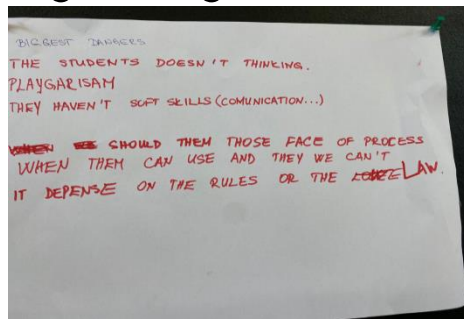 BIGGEST DANGERS
THE STUDENTS DOESN'T THINKING.
PLAYGARISAM
THEY HAVEN'T SOFT SKILLS (COMUNICATION...)
SHOULD THEM THOSE FACE OF PROCESS
WHEN THEM CAN USE AND THEY WE CAN'T
IT DEPENSE ON THE RULES OR THE LAW.